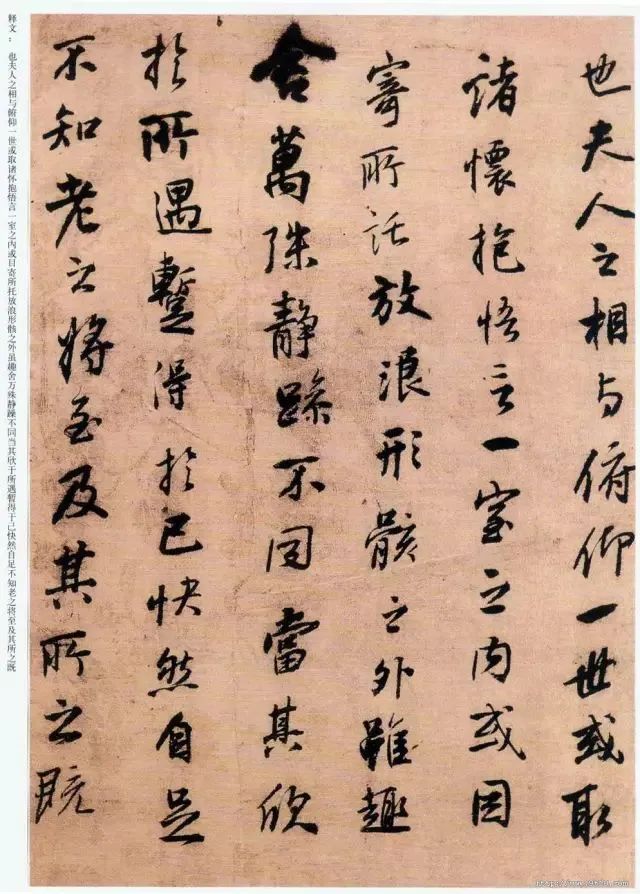 也夫人之相与俯仰一世或取
諸懷抱悟言一室之内或因
寄所託放浪形骸之外雖趣
舍萬殊静躁不同當其欣
於所遇蹔得於己快然自足
不知老之將至及其所之既
释文： 也夫人之相与俯仰一世或取诸怀抱悟言一室之内或目寄所托放浪形骸之外虽趣舍万殊静躁不同当其欣于所遇暂得于己快然自足不知老之将至及其所之既